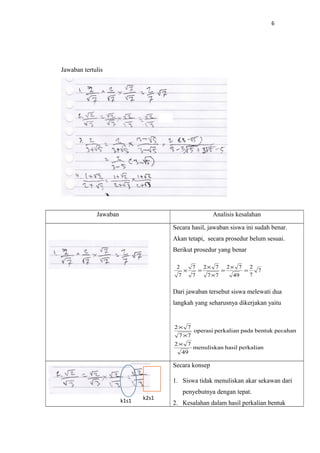 6
Jawaban tertulis
1. 2/√7 = 2/√7 × √7/√7 = 2/7 √7
2. √2/√3 = √5/√3 × √3/√3 = √5/√3
3. 2/3+√5 = 2/3+√5 × 3-√5/3-√5 = 2(3-√5)/9-3√5+3√5-5
= 2/5 (3-√5)
4. 1+√2/2+√3 = 1+√2/2+√3 × 1+√2/2+√3
Jawaban
Analisis kesalahan
1. 2/√7 = 2/√7 × √7/√7 = 2/7 √7
Secara hasil, jawaban siswa ini sudah benar.
Akan tetapi, secara prosedur belum sesuai.
Berikut prosedur yang benar
2/7 × 7/7 = 2×7/7×7 = 2×7/49 = 2/7 7
Dari jawaban tersebut siswa melewati dua
langkah yang seharusnya dikerjakan yaitu
2×7/7×7 operasi perkalian pada bentuk pecahan
2×7/49 menuliskan hasil perkalian
k1s1
k2s1
Secara konsep
1. Siswa tidak menuliskan akar sekawan dari
penyebutnya dengan tepat.
2. Kesalahan dalam hasil perkalian bentuk